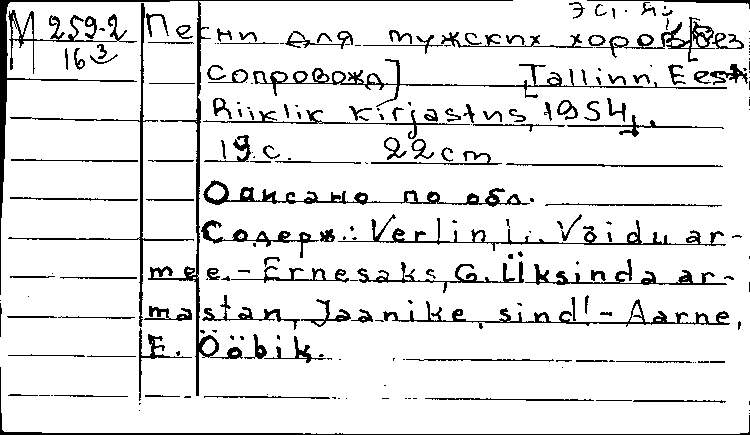 Эст. яз.
М 259-2 Песни для мужских хоров [без
16 3
сопровожд] [Tallinn, Eesti
Riiklik kirjastus, 1954].
19 с. 22 cm
Описано по обл.
Содерж.: Verlin, L. Võidu ar-
mee.- Ernesaks, G. Üksinda ar-
mastan, Jaanike, sind! - Aarne,
E. Ööbik.